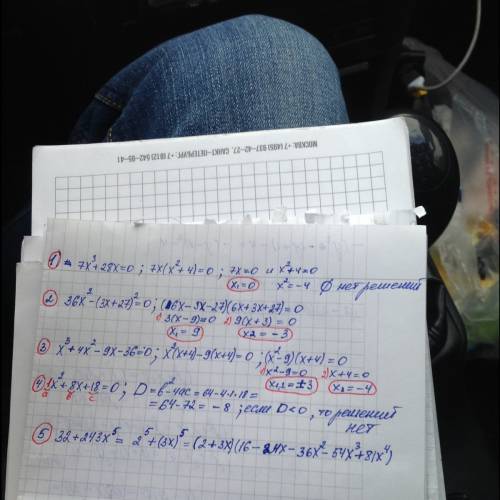 МОСКВА: +7 (495) 937-42-27, САНКТ-ПЕТЕРБУРГ: +7 (812) 542-85-41
1 7x³+28x=0 ; 7x(x²+4)=0 ; 7x=0 и x²+4=0
x₁=0 x²=-4 ∅ нет решений
2 36x²-(3x+27)²=0; (6x-3x-27)(6x+3x+27)=0
1) 3(x-9)=0 2) 9(x+3)=0
x₁=9 x2=-3
3 x³+4x²-9x-36=0; x²(x+4)-9(x+4)=0; (x²-9)(x+4)=0
1) x²-9=0 2) x+4=0
x₁,₂=±3 x₃=-4
4 x²+8x+18=0; D=b²-4ac=64-4·1·18=
a b c
=64-72=-8; если D<0, то решений
нет
5 32+243x⁵=2⁵+(3x)⁵=(2+3x)(16-24x-36x²-54x³+81x⁴)